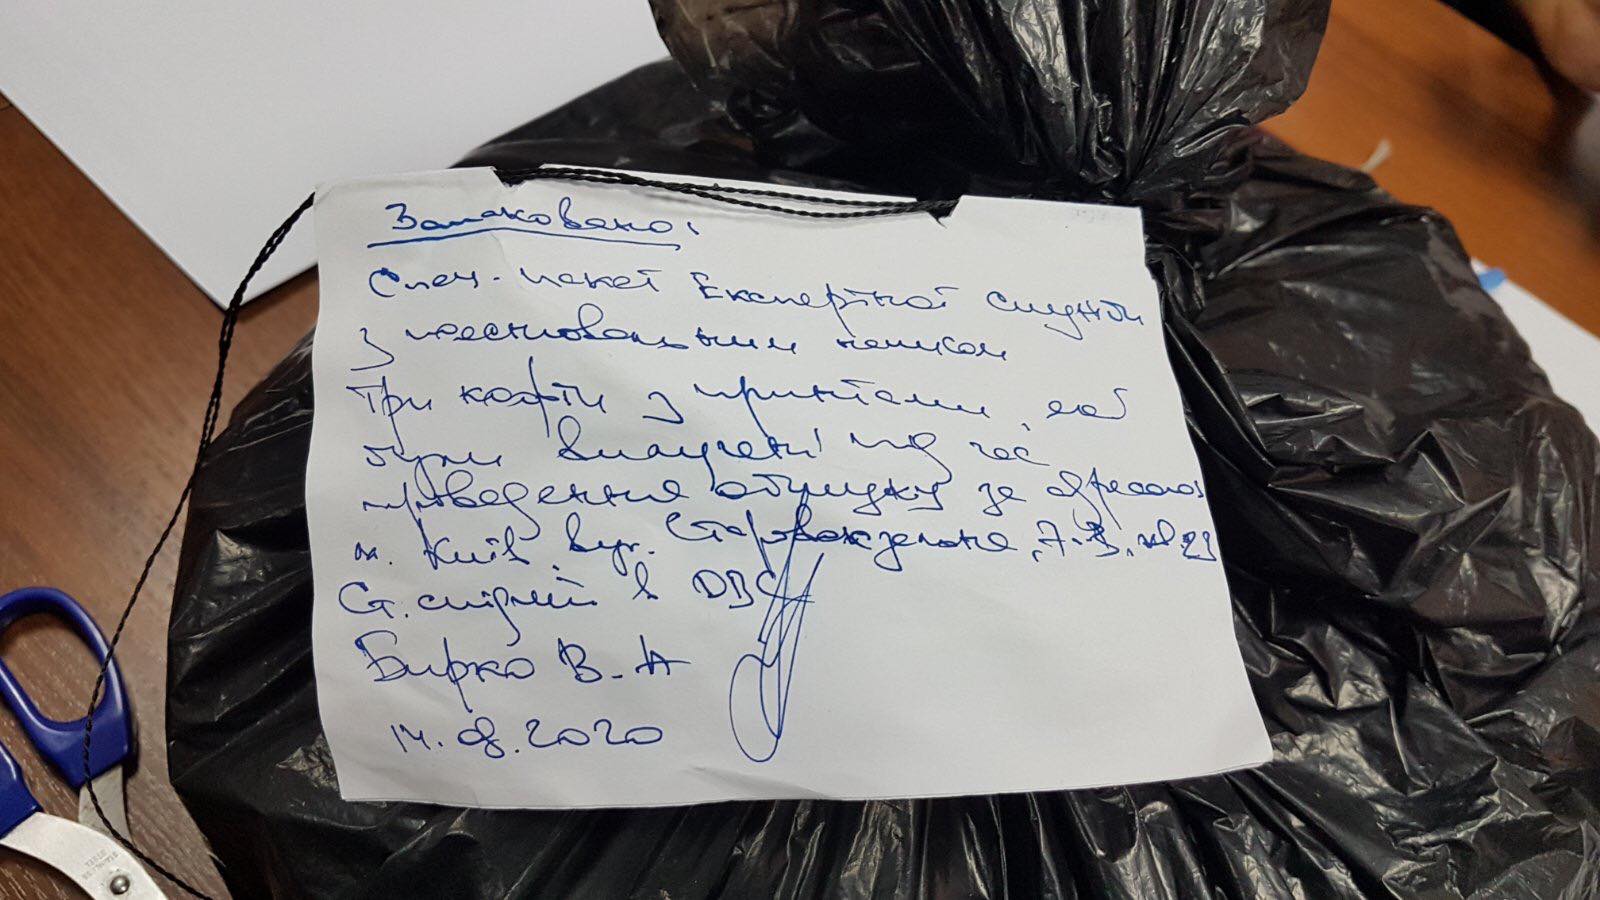 Запаковано:
Спец. пакет Експертної служби
з пояснювальним написом
Три кофти з принтами, які
були вилучені під час
проведення обшуку за адресою
м. Київ, вул. 23
Ст. слідчий в ДБР
Бирко В. А
14.08.2020